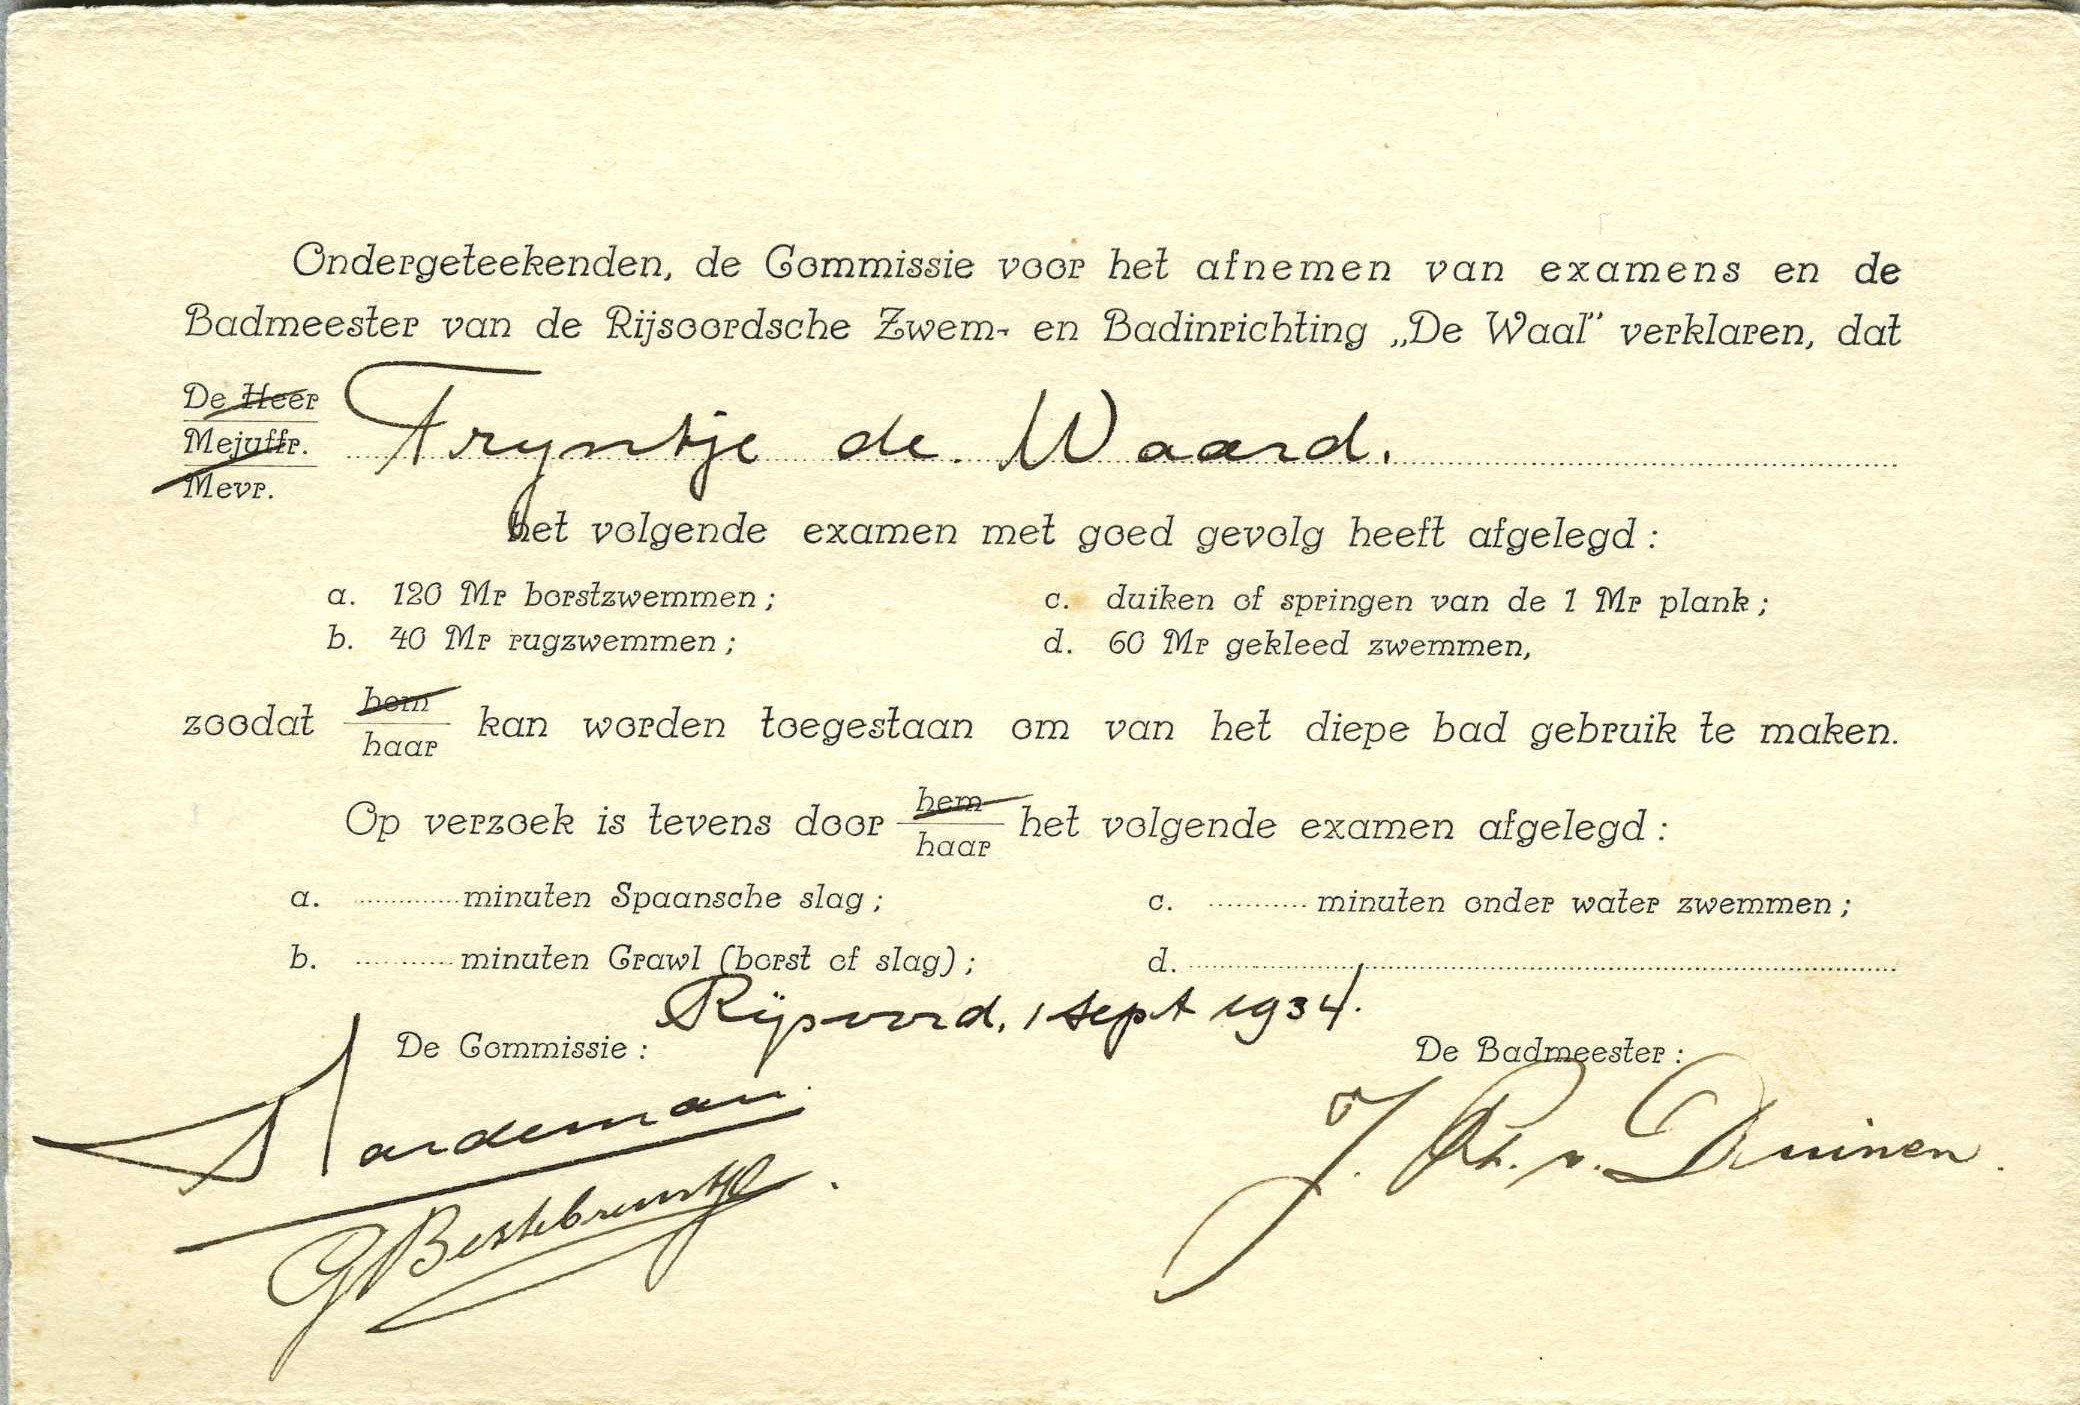 Ondergeteekenden, de Commissie voor het afnemen van examens en de
Badmeester van de Rijsoordsche Zwem- en Badinrichting „De Waal” verklaren, dat
De Heer
Mejuffr.
Mevr.
Tryntje de Waard.
het volgende examen met goed gevolg heeft afgelegd:
a. 120 Mr borstzwemmen;
c. duiken of springen van de 1 Mr plank;
b. 40 Mr rugzwemmen;
d. 60 Mr gekleed zwemmen,
zoodat hem/haar kan worden toegestaan om van het diepe bad gebruik te maken.
Op verzoek is tevens door hem/haar het volgende examen afgelegd:
a. ............ minuten Spaansche slag;
c. ............ minuten onder water zwemmen;
b. ............ minuten Crawl (borst of slag);
d. ............
Rijsoord, 1 sept 1934.
De Commissie:
De Badmeester:
J. Ph. v. Duinen.